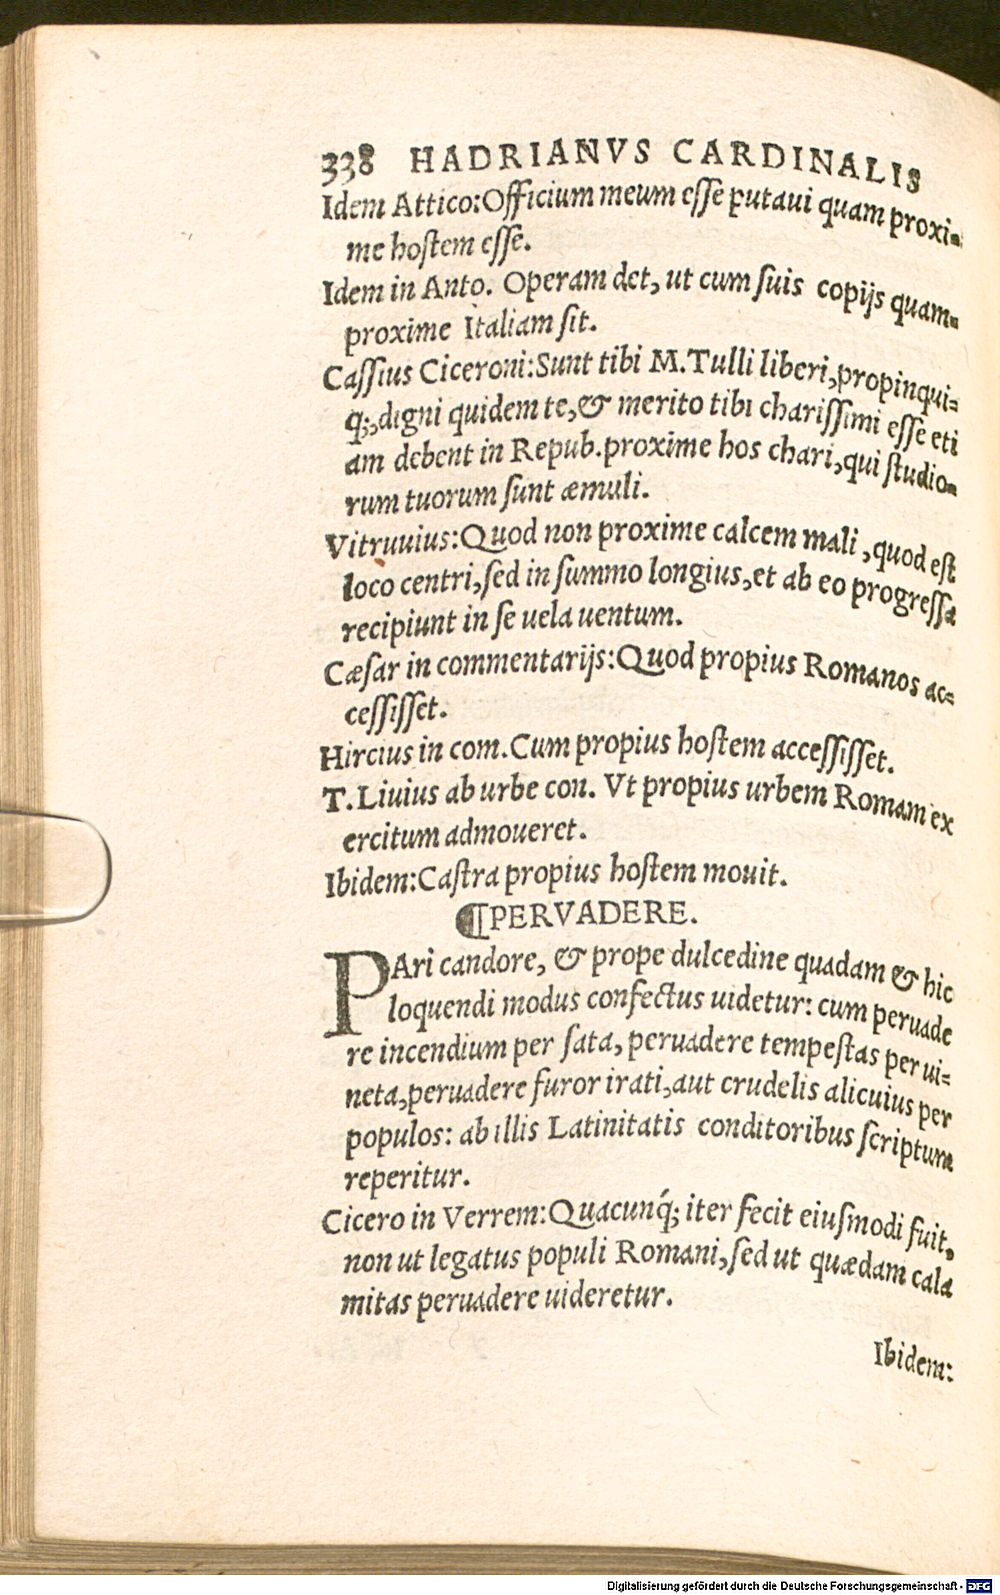 338 HADRIANVS CARDINALIS
Idem Attico:Officium meum esse putaui quam proxi-
me hostem esse.
Idem in Anto. Operam det, ut cum suis copijs quam-
proxime Italiam sit.
Cassius Ciceroni:Sunt tibi M.Tulli liberi,propinqui-
q;,digni quidem te,& merito tibi charissimi esse eti
am debent in Repub.proxime hos chari,qui studio-
rum tuorum sunt æmuli.
Vitruuius:Quod non proxime calcem mali,quod est
loco centri,sed in summo longius,et ab eo progressa
recipiunt in se uela uentum.
Cæsar in commentarijs:Quod propius Romanos ac-
cessisset.
Hircius in com.Cum propius hostem accessisset.
T.Liuius ab urbe con. Vt propius urbem Romam ex
ercitum admoueret.
Ibidem:Castra propius hostem mouit.
¶PERVADERE.
PAri candore, & prope dulcedine quadam & hic
loquendi modus confectus uidetur: cum peruade
re incendium per sata, peruadere tempestas per ui-
neta,peruadere furor irati,aut crudelis alicuius per
populos: ab illis Latinitatis conditoribus scriptum
reperitur.
Cicero in Verrem:Quacunq́; iter fecit eiusmodi fuit,
non ut legatus populi Romani,sed ut quædam cala
mitas peruadere uideretur.
Ibidem:
Digitalisierung gefördert durch die Deutsche Forschungsgemeinschaft - DFG